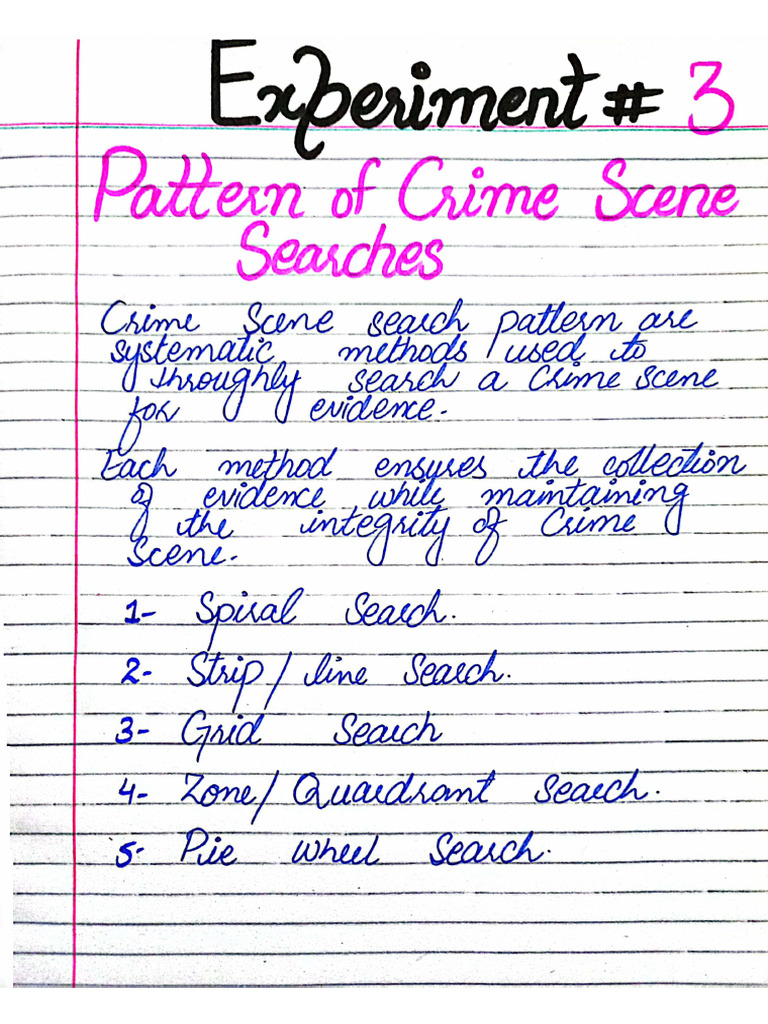 Experiment # 3
Pattern of Crime Scene
Searches
Crime Scene search pattern are
systematic methods used to
throughly search a Crime scene
for evidence.
Each method ensures the collection
of evidence while maintaining
the integrity of Crime
Scene.
1- Spiral Search.
2- Strip/ line Search.
3- Grid Search
4- Zone/ Quardrant Search.
5- Pie wheel Search.